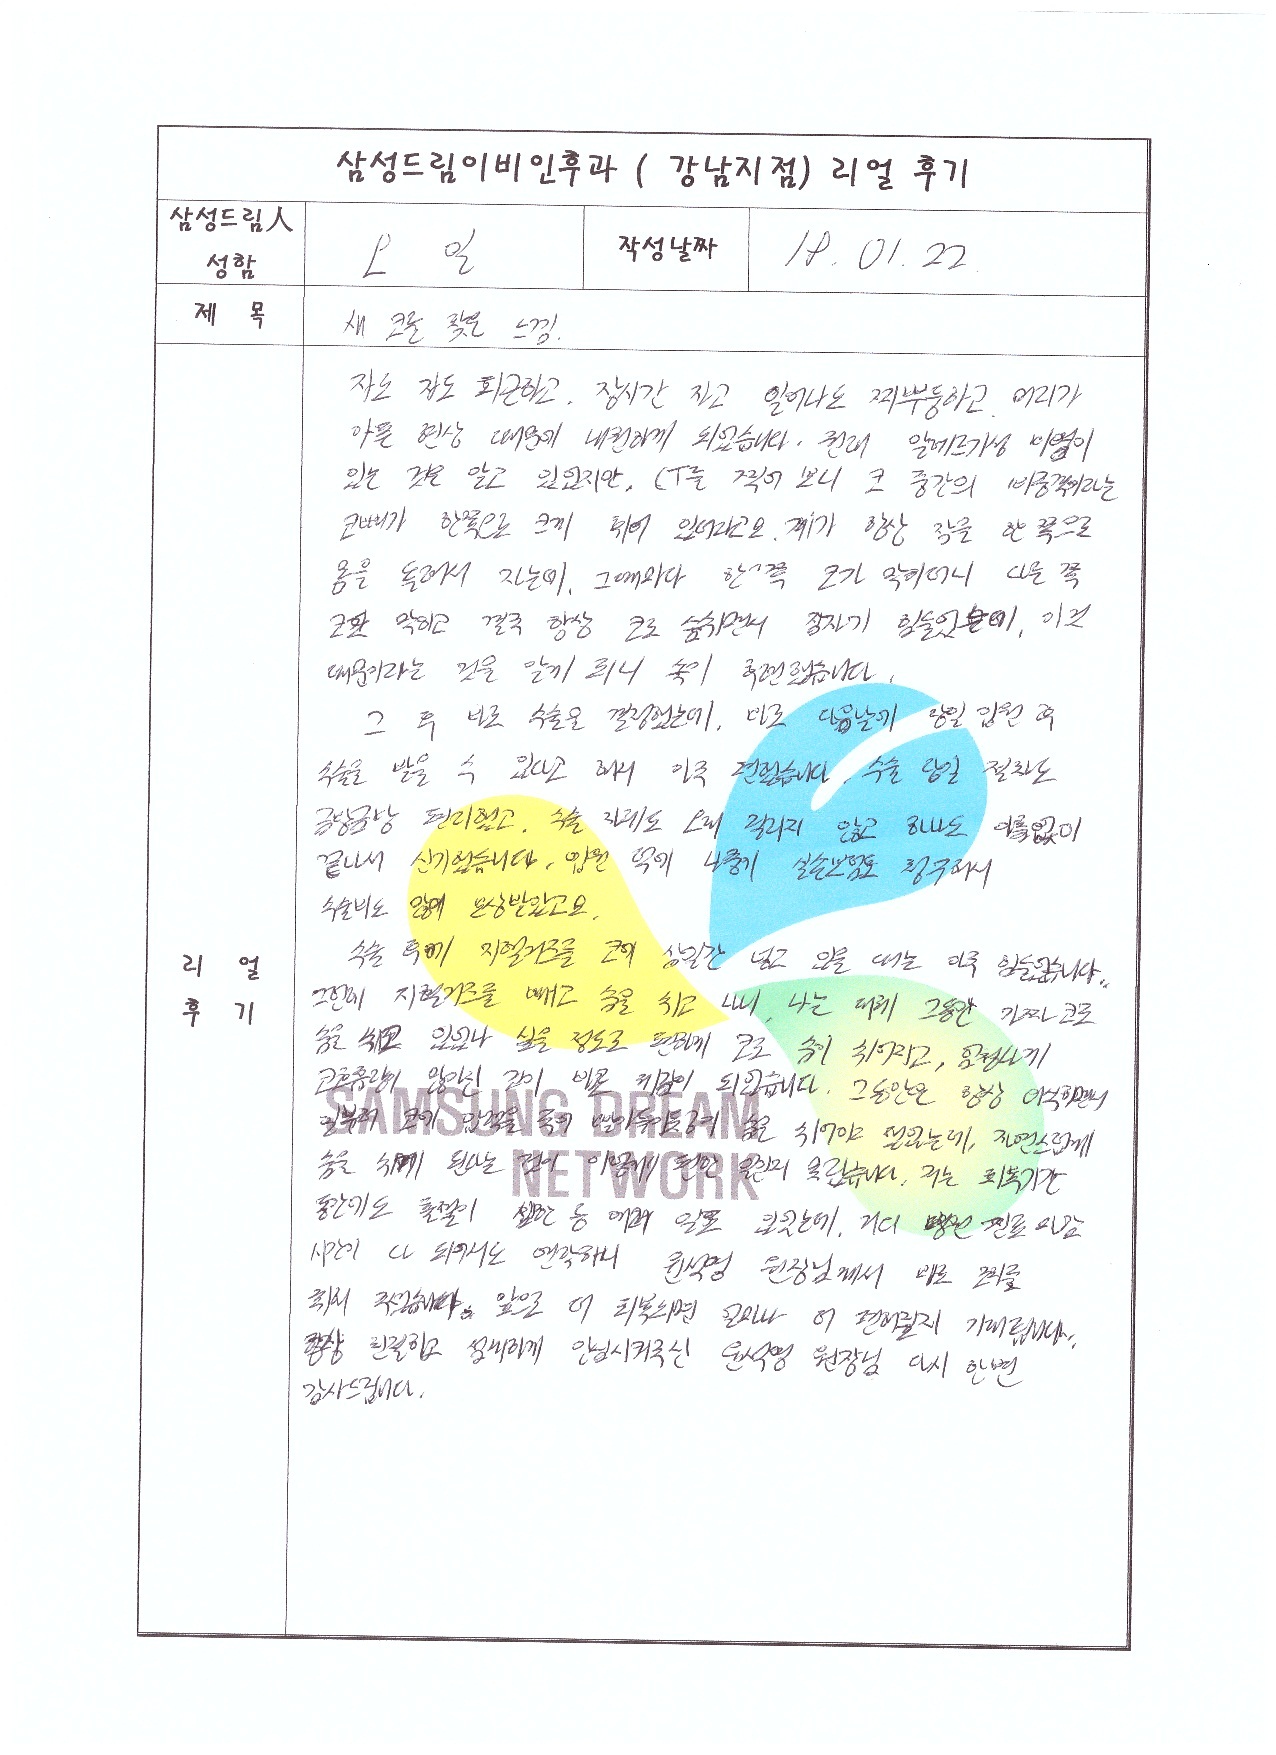 삼성드림이비인후과 ( 강남지점) 리얼 후기
삼성드림人
성함
오 일
작성날짜
18. 01. 22
제 목
새 코를 찾은 느낌.
리 얼
후 기
자도 자도 피곤하고, 장시간 자고 일어나도 찌뿌둥하고 머리가
아픈 현상 때문에 내원하게 되었습니다. 원래 알레르기성 비염이
있는 것은 알고 있었지만, CT를 찍어 보니 코 중간의 비중격이라는
코뼈가 한쪽으로 크게 휘어 있더라고요. 제가 항상 잠을 한 쪽으로
몸을 돌려서 자는데, 그때마다 한 쪽 코가 막히더니 다른 쪽
코도 막히고 결국 항상 코로 숨쉬면서 잠자기 힘들었는데, 이것
때문이라는 것을 알게 되니 속이 후련했습니다.
그 후 바로 수술을 결정했는데, 바로 다음날에 당일 입원 후
수술을 받을 수 있다고 해서 아주 편했습니다. 수술 당일 절차도
금방금방 편리했고, 수술 자체도 오래 걸리지 않고 하나도 아픔없이
끝나서 신기했습니다. 입원 덕에 나중에 실손보험도 청구해서
수술비도 보상받았고요.
수술 후에 지혈거즈를 코에 삼일간 넣고 있을 때는 아주 힘들었습니다..
그런데 지혈거즈를 빼고 숨을 쉬고 나니, 나는 대체 그동안 가짜 코로
숨을 쉬고 있었나 싶을 정도로 편하게 코로 숨이 쉬어지고,
되었습니다. 그동안은 항상 의식하면서
일부러 코에 숨을 쉬어야 했었는데, 자연스럽게
숨을 쉬게 된다는 것이 이렇게 편한 일인지 몰랐습니다. 저는 회복기간
동안에도 출혈이 심한 등 병원 진료 마감
시간이 다 되어서도 연락하니 윤석영 원장님께서 바로 처치를
해 주셨습니다. 앞으로 더 회복되면 얼마나 더 편해질지 기대됩니다.
항상 친절하고 섬세하게 안심시켜주신 윤석영 원장님 다시 한번
감사드립니다.
SAMSUNG DREAM
NETWORK